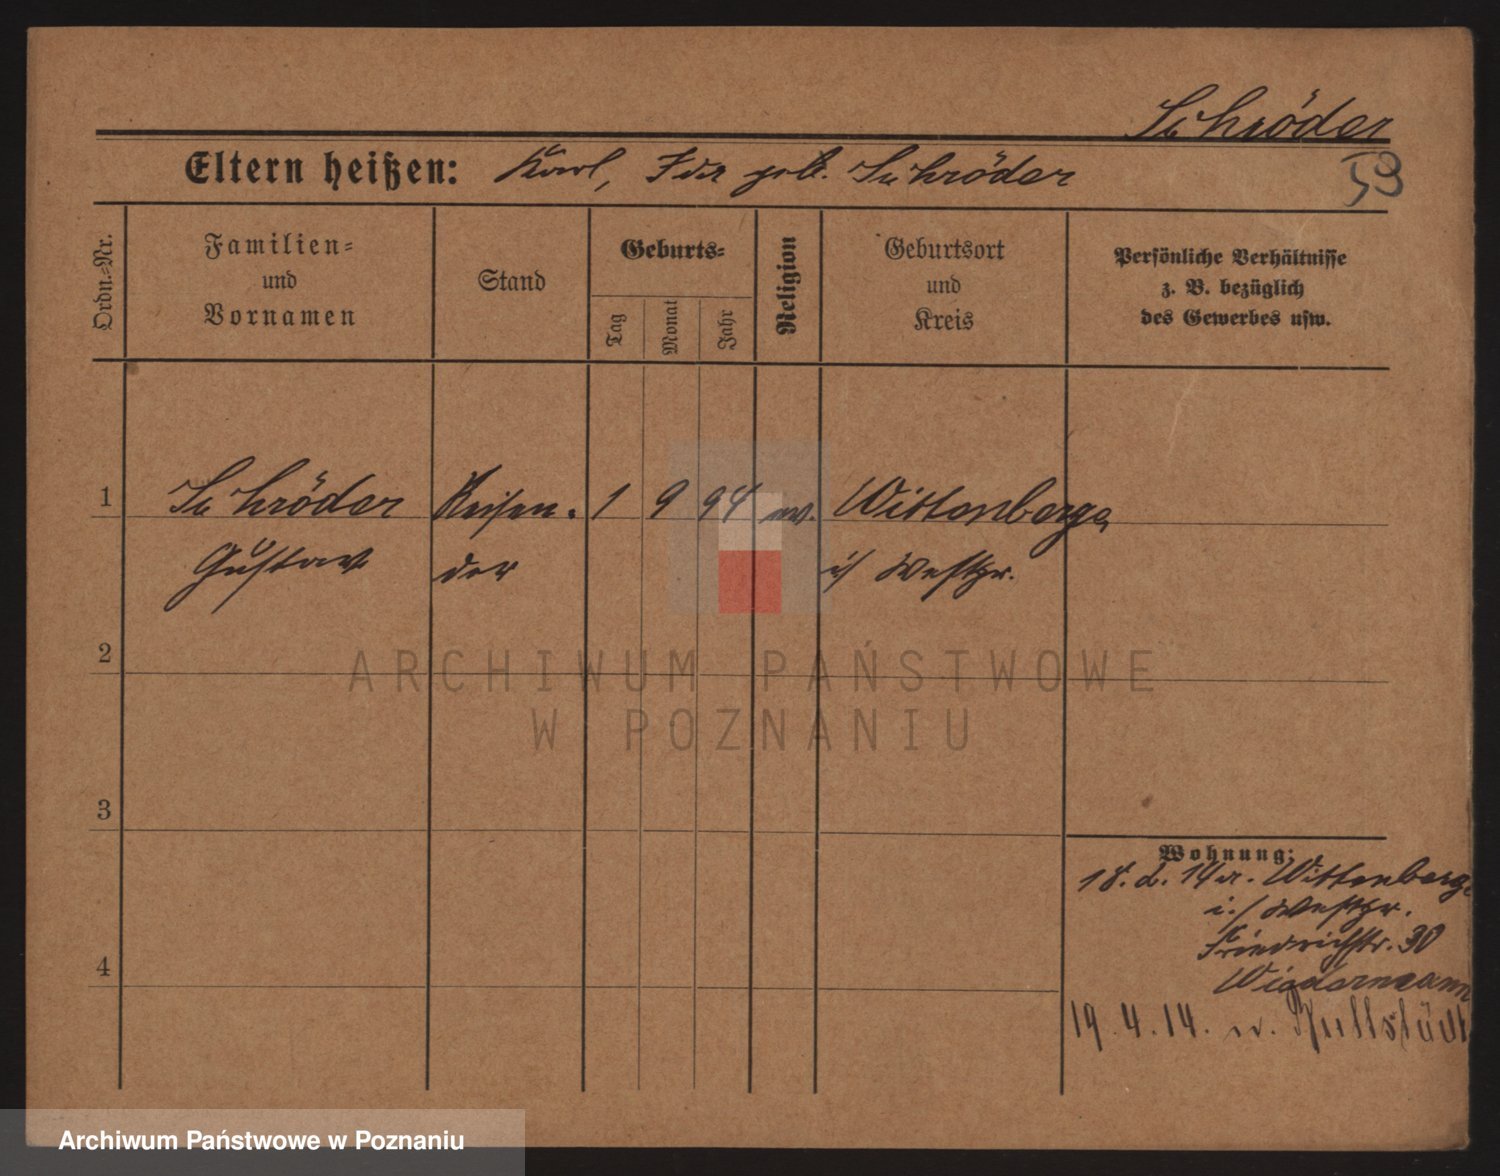 Schröder
Eltern heißen: Karl, Ida geb. Schröder
53
Ordn.-Nr.
Familien-
und
Vornamen
Stand
Geburts-
Tag
Monat
Jahr
Religion
Geburtsort
und
Kreis
Persönliche Verhältnisse
z. B. bezüglich
des Gewerbes usw.
1 Schröder Reisen- 1 9 94 ev. Wittenberge
Gustav der i/ Westpr.
2
ARCHIWUM PAŃSTWOWE
W POZNANIU
3
Wohnung:
18. 2. 14 Wittenberge
i./ Westpr.
Friedrichstr. 30
Wiedermann
4
19. 4. 14. n.
Archiwum Państwowe w Poznaniu